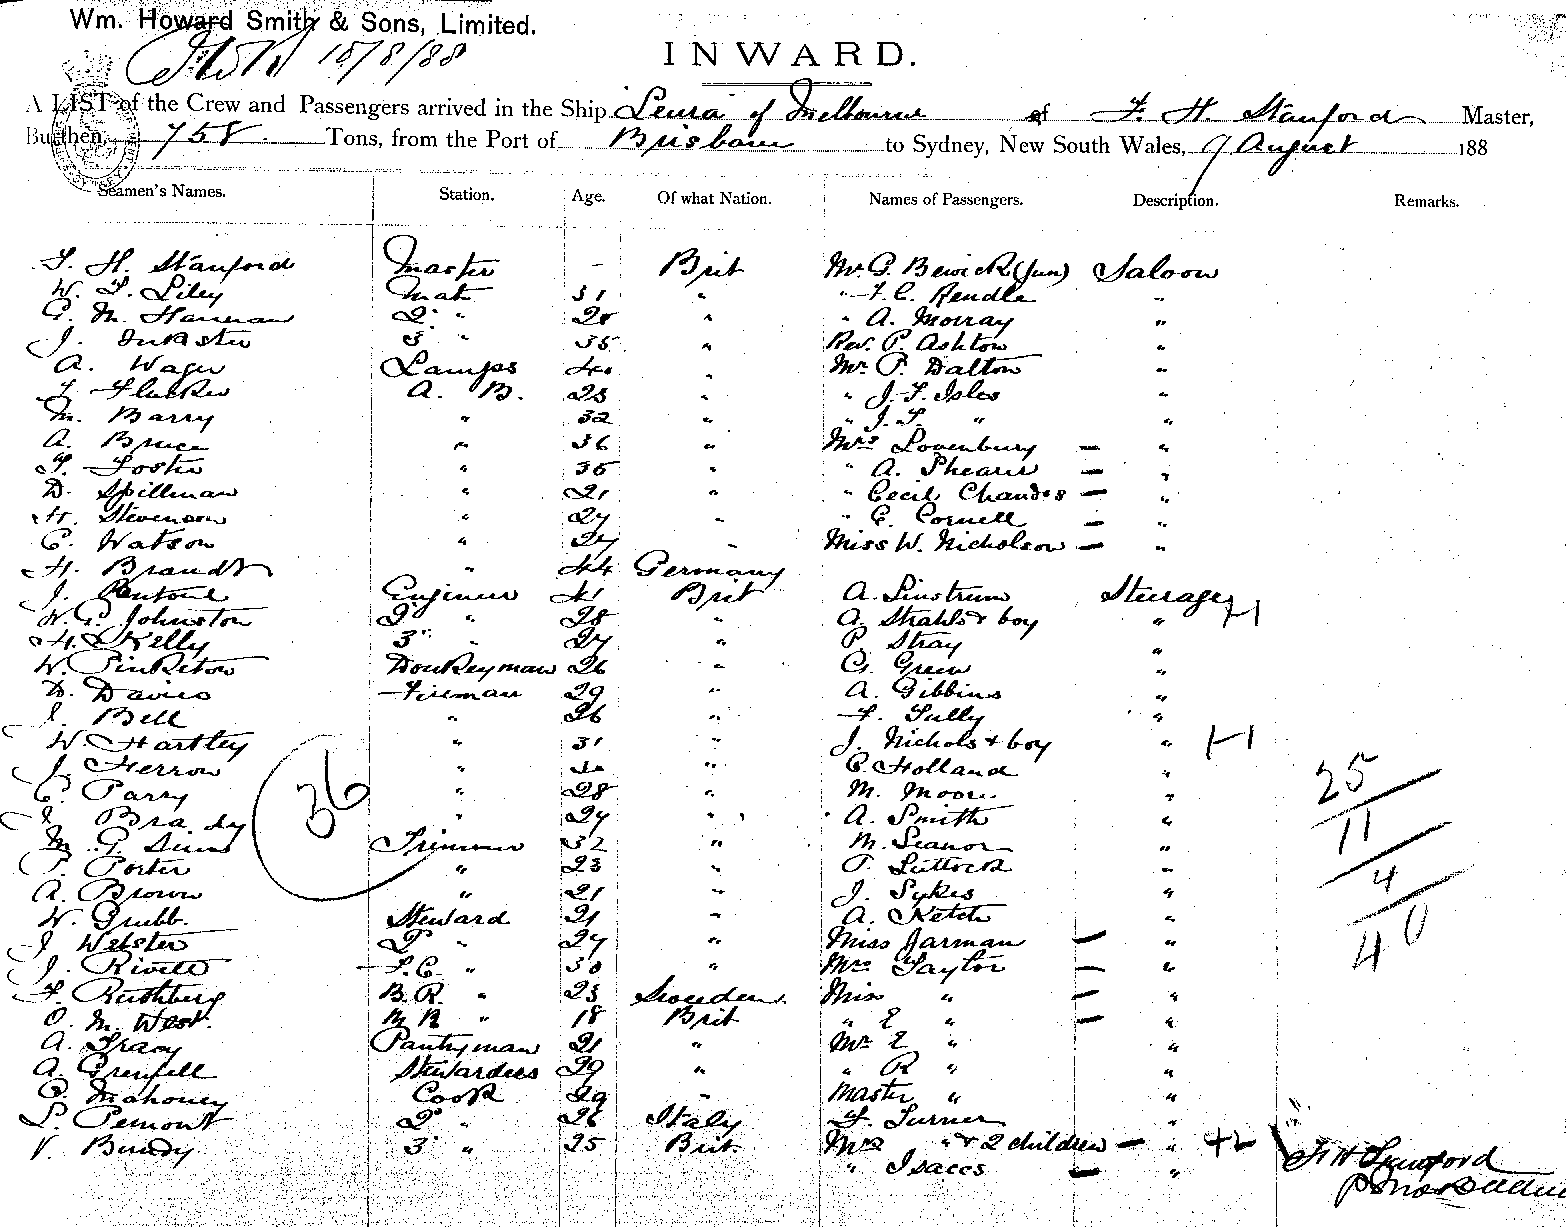 Wm. Howard Smith & Sons, Limited.
10/8/88
INWARD.
A LIST of the Crew and Passengers arrived in the Ship Leura of Melbourne of F. H. Stanford Master,
Burthen, 758 Tons, from the Port of Brisbane to Sydney, New South Wales, 9 August 188
Seamen's Names. Station. Age. Of what Nation. Names of Passengers. Description. Remarks.
F. H. Stanford Master - Brit Mr. G. Bewick (Jun) Saloon
W. F. Liley Mate 31 " " F. C. Rendle "
G. M. Hannan 2 " 28 " " A. Morray "
J. 3 " 35 " Rev. P. Ashton "
A. Wager Lamps 40 " Mr. P. Dalton "
F. Flucker A. B. 23 " " J. F. Isles "
M. Barry " 32 " " J. T. " "
A. Bruce " 36 " Mrs Lovenbury - "
F. Foster " 35 " " A. Shearer - "
D. Spillman " 21 " " Cecil Chandos - "
H. Stevenson " 27 " " E. Cornell - "
C. Watson " 27 " Miss W. Nicholson - "
H. Brandt " 44 Germany
J. Engineer 41 Brit A. Linstrum Steerage
W. G. Johnston 2 " 28 " A. Strahls & boy " +1
H. Kelly 3 " 27 " P. Stray "
W. Pinketon Donkeyman 26 " G. Green "
D. Davies Fireman 29 " A. Gibbins "
J. Bell " 26 " F. Tully "
W. Hartley " 31 " J. Nichols & boy " +1
J. Herron " 30 " C. Holland "
C. Parry " 28 " M. Moore "
J. Brady " 27 " A. Smith "
36
M. G. Trimmer 32 " M. "
P. Porter " 23 " P. Luttock "
A. Brown " 21 " J. Sykes "
W. Grubb Steward 21 " A. Ketch "
J. Webster 2 " 27 " Miss Jarman - "
J. Rivett F.C. " 30 " Mrs Taylor - "
F. Rushberg B.R. " 23 Sweden Miss " - "
O. M. West. M R " 18 Brit " E " - "
A. Tracy Pantryman 21 " Mr E " "
A. Grenfell Stewardess 29 " " R " "
C. Mahoney Cook 29 " Master " "
L. Pemont 2 " 26 Italy F. Turner "
V. Bundy 3 " 25 Brit. Mrs " & 2 children - " +2
" Isaccs - "
25
11
4
40
F H Stanford